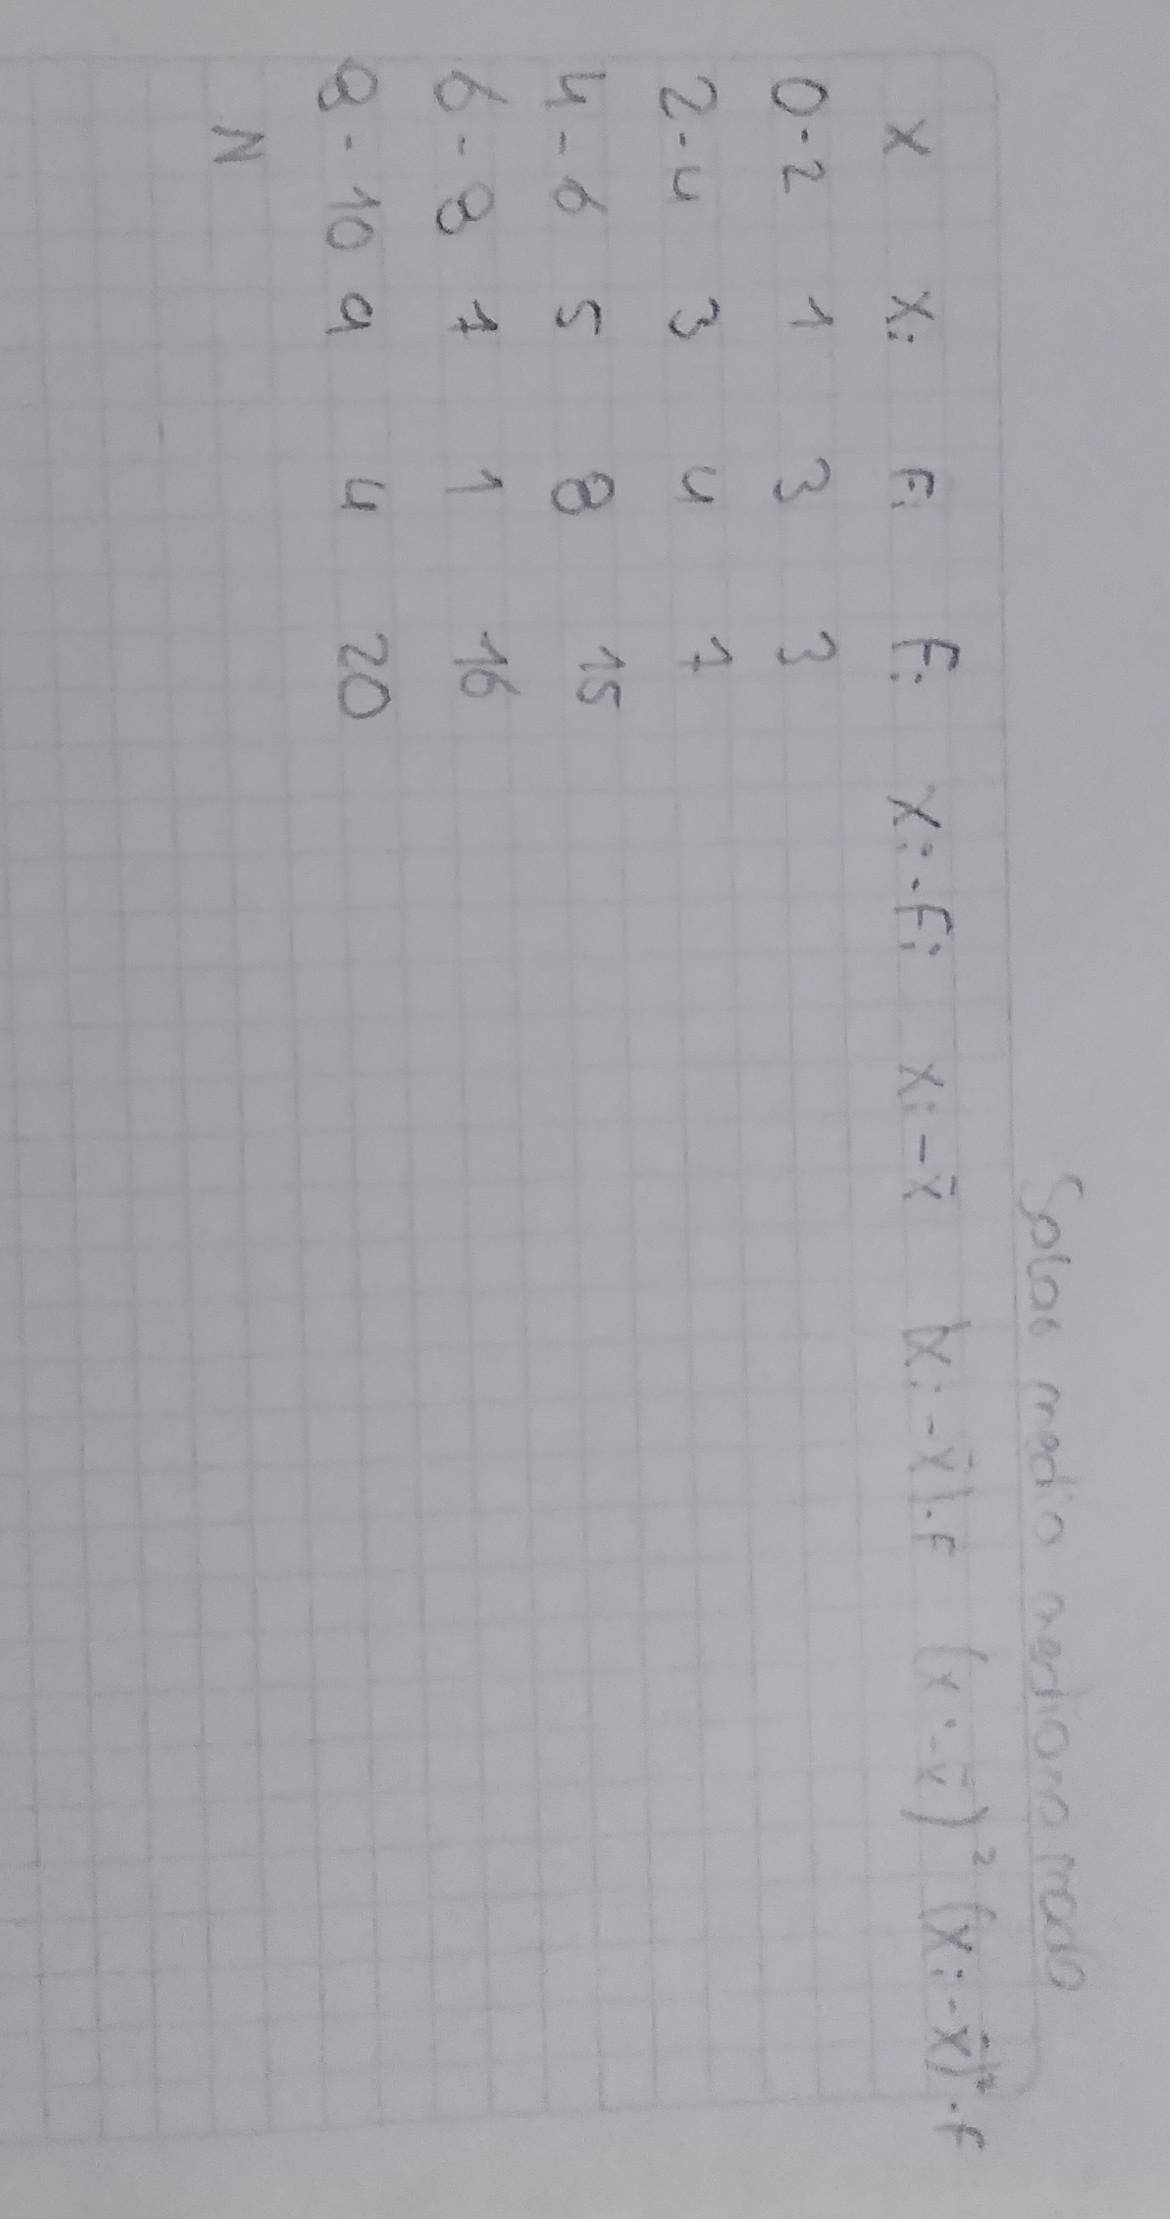 Solos media mediana moda
X X: F: F: X:·F: X:-X̄ |X:-X̄|·F (X·-X̄)² (X:-X̄)²·F
0-2 1 3 3
2-4 3 4 7
4-6 5 8 15
6-8 7 1 16
8-10 9 4 20
N